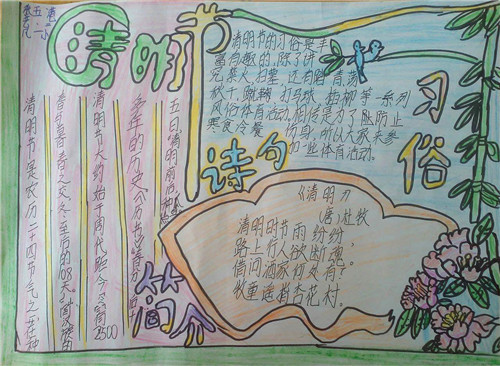 清明节
清明节的习俗是丰
富有趣的,除了讲
究禁火、扫墓,还有踏青、荡
秋千、蹴鞠、打马球、插柳等一系列
风俗体育活动。相传是为了防止
寒食冷餐伤身,所以大家来参
加一些体育活动。
习俗
诗句
《清明》
(唐)杜牧
清明时节雨纷纷,
路上行人欲断魂。
借问酒家何处有?
牧童遥指杏花村。
简介
清明节是农历二十四节气之一,在种
春与暮春之交,冬至后的108天。汉族的
清明节大约始于周代,距今已有2500
多年的历史。《历书》:春分后十
五日,清明前后,种